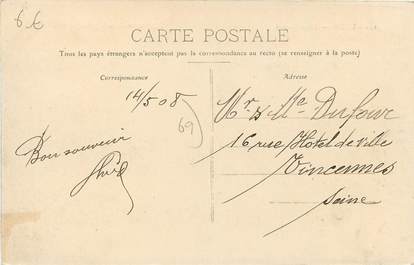 6 €
CARTE POSTALE
Tous les pays étrangers n'acceptent pas la correspondance au recto (se renseigner à la poste)
Correspondance
Adresse
14/5 08
69
Bon souvenir
Mr & Me Dufour
16 rue Hotel de ville
Vincennes
Seine